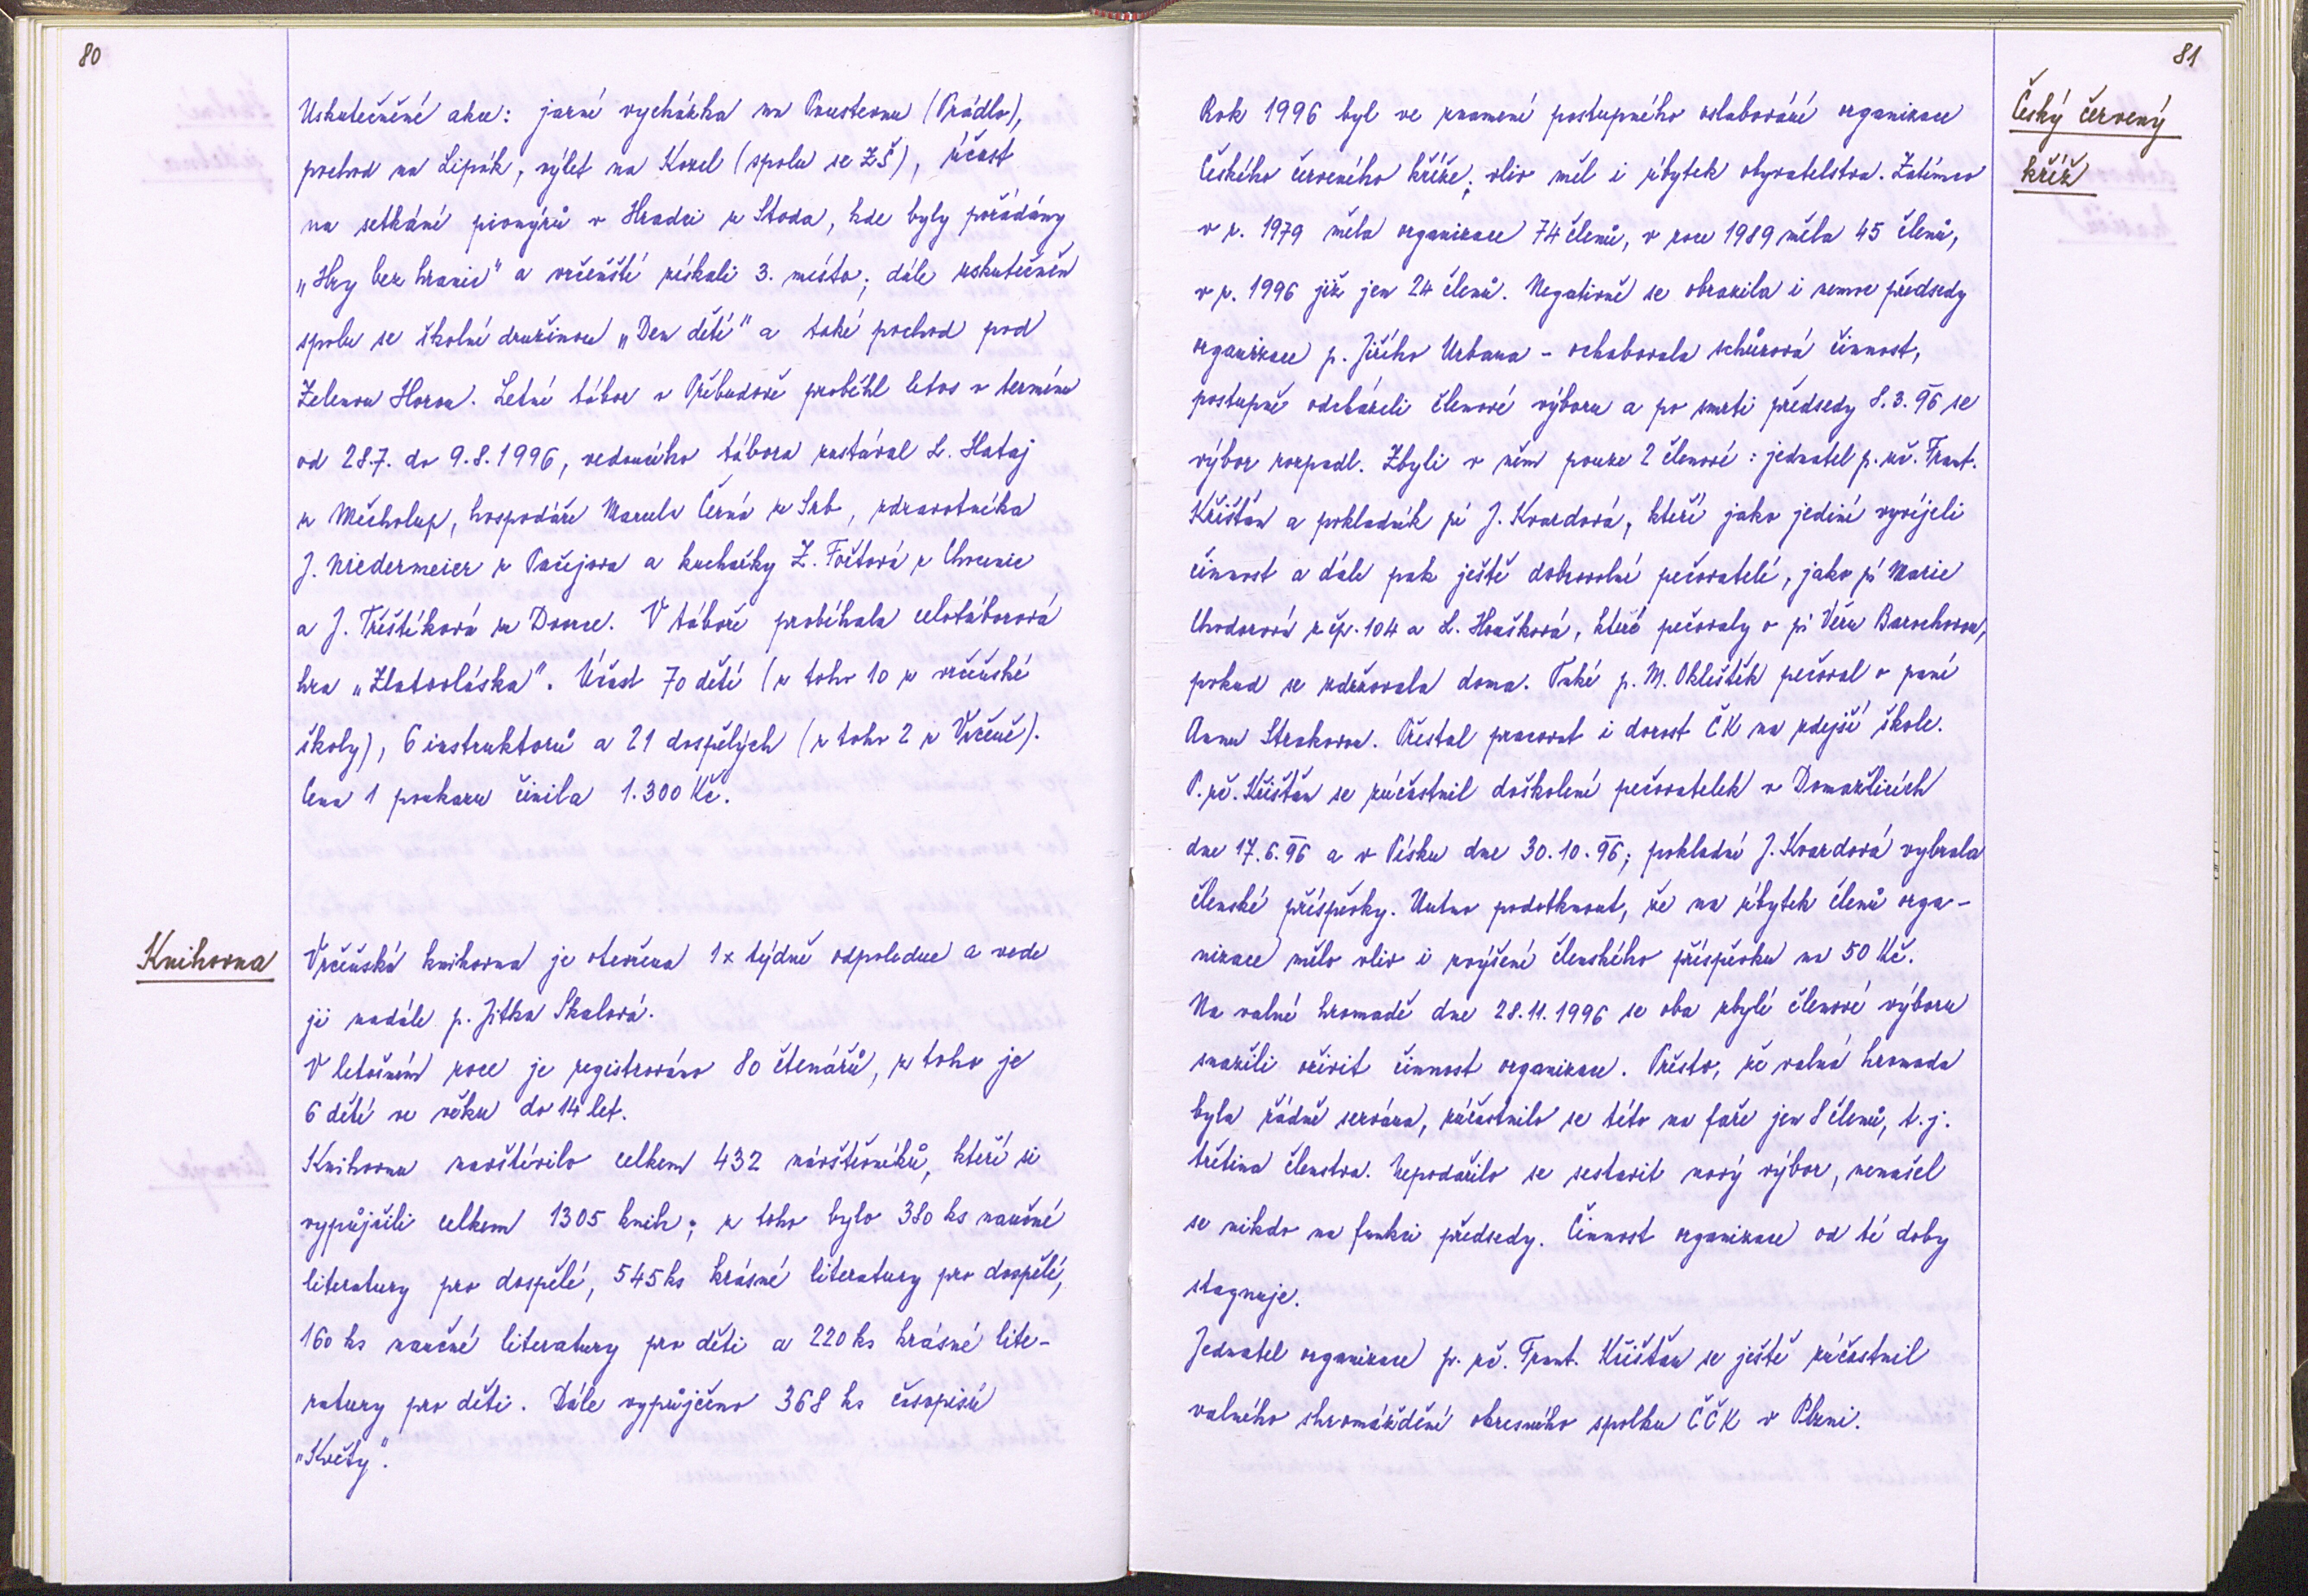 80
Uskutečněné akce: jarní vycházka na Poustevnu (Prádlo),
pochod na Lipák, výlet na Kozel (spolu se ZŠ), účast
na setkání pionýrů v Hradci u Stoda, kde byly pořádány
„Hry bez hranic" a vrčeňští získali 3. místo; dále uskutečněn
spolu se školní družinou „Den dětí" a také pochod pod
Zelenou Horou. Letní tábor v Přebudově proběhl letos v termínu
od 28.7. do 9.8.1996, vedoucího tábora zastával L. Hataj
z Měcholup, hospodáře Marcela Černá ze Srb, zdravotníka
J. Niedermeier z Pačejova a kuchařky Z. Foětová z Chocenic
a J. Třeštíková ze Dvorce. V táboře probíhala celotáborová
hra „Zlatovláska". Účast 70 dětí (z toho 10 z vrčeňské
školy), 6 instruktorů a 21 dospělých (z toho 2 z Vrčeně).
Cena 1 poukazu činila 1.300 Kč.
Knihovna
Vrčeňská knihovna je otevřena 1x týdně odpoledne a vede
ji nadále p. Jitka Skalová.
V letošním roce je registrováno 80 čtenářů, z toho je
6 dětí ve věku do 14 let.
Knihovnu navštívilo celkem 432 návštěvníků, kteří si
vypůjčili celkem 1305 knih; z toho bylo 380 ks naučné
literatury pro dospělé, 545 ks krásné literatury pro dospělé,
160 ks naučné literatury pro děti a 220 ks krásné lite-
ratury pro děti. Dále vypůjčeno 368 ks časopisů
„Květy".
81
Český červený
kříž
Rok 1996 byl ve znamení postupného oslabování organizace
Českého červeného kříže; vliv měl i úbytek obyvatelstva. Zatímco
v r. 1979 měla organizace 74 členů, v roce 1989 měla 45 členů,
v r. 1996 již jen 24 členů. Negativně se obrazila i nemoc předsedy
organizace p. Jiřího Urbana - ochabovala schůzová činnost,
postupně odcházeli členové výboru a po smrti předsedy 8.3.96 se
výbor rozpadl. Zbyli v něm pouze 2 členové: jednatel p. uč. Frant.
Křišťan a pokladník pí J. Kvardová, kteří jako jediní vyvíjeli
činnost a dále pak ještě dobrovolné pečovatelé, jako pí Marie
Chodorová z čp. 104 a L. Houšková, které pečovaly o pí Věru Barochovou,
pokud se zdržovala doma. Také p. M. Okleštěk pečoval o paní
Annu Strakovou. Přestal pracovat i dorost ČK na zdejší škole.
P. uč. Křišťan se zúčastnil doškolení pečovatelek v Domažlicích
dne 17.6.96 a v Písku dne 30.10.96; pokladní J. Kvardová vybrala
členské příspěvky. Nutno podotknout, že na úbytek členů orga-
nizace mělo vliv i zvýšení členského příspěvku na 50 Kč.
Na valné hromadě dne 28.11.1996 se oba zbylí členové výboru
snažili oživit činnost organizace. Přesto, že valná hromada
byla řádně svolána, zúčastnilo se této na faře jen 8 členů, t.j.
třetina členstva. Nepodařilo se sestavit nový výbor, nenašel
se nikdo na funkci předsedy. Činnost organizace od té doby
stagnuje.
Jednatel organizace p. uč. Frant. Křišťan se ještě zúčastnil
valného shromáždění okresního spolku ČČK v Plzni.